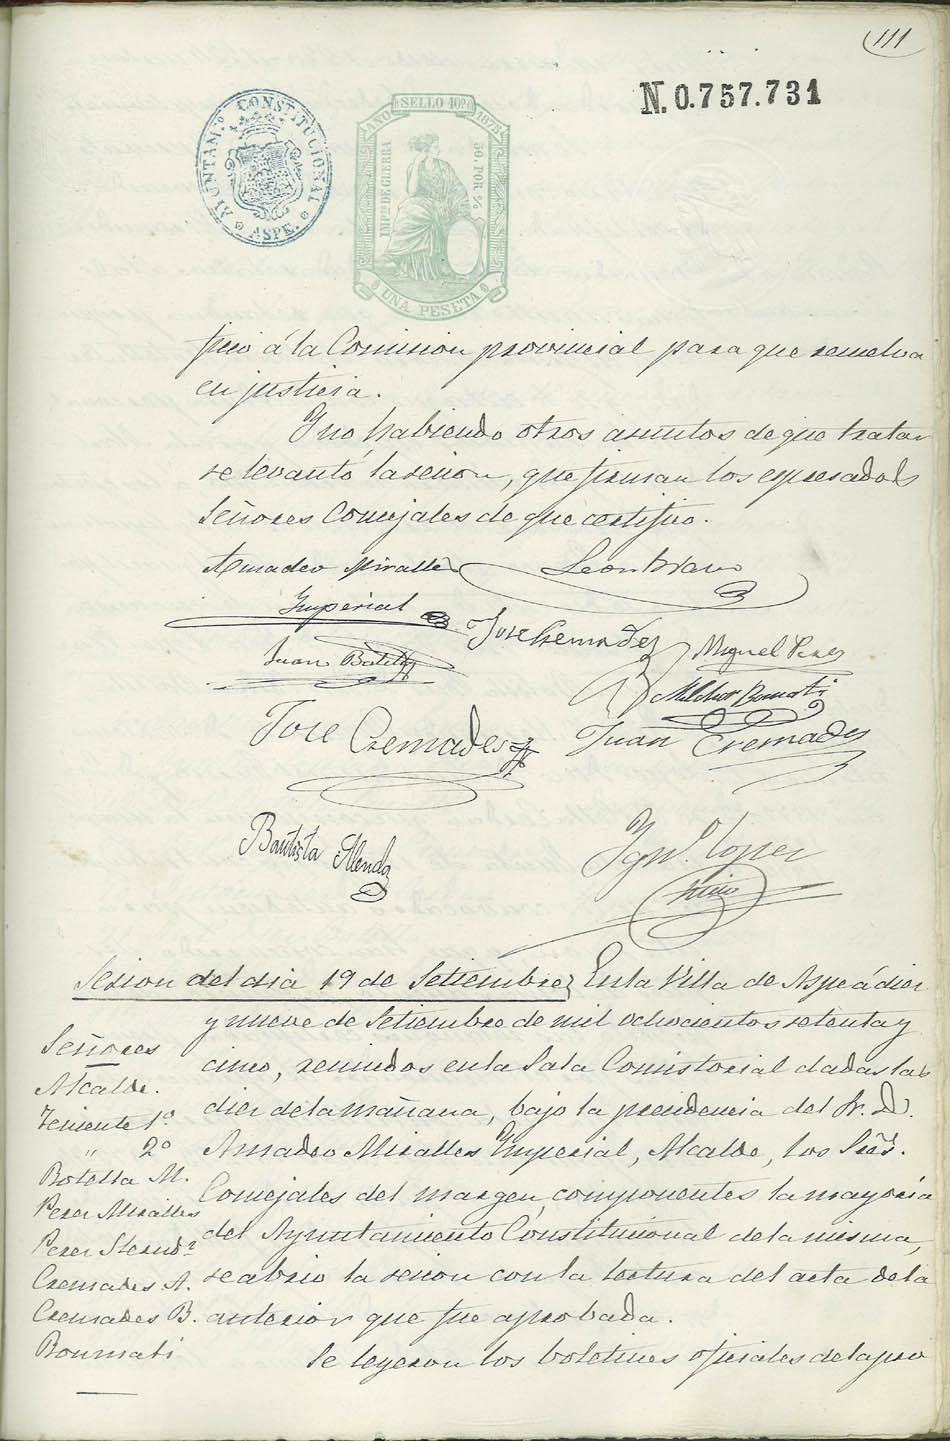 111
N. 0.757.731
AYUNTAM.º CONSTITUCIONAL
ASPE.
SELLO 10º
AÑO 1875
IMPº DE GUERRA
50. POR %
UNA PESETA
á la Comision provincial para que resuelva
en justicia.
Y no habiendo otros asuntos de que tratar
se levantó la sesion, que firman los espresados
Señores Concejales de que certifico.
Amadeo Miralles
Imperial
Jose Cremades
Miguel Perez
Juan Botella
Melchor Bonmati
Jose Cremades
Juan Cremades
Bautista
Ign.º Lopez
Sesion del dia 19 de Setiembre En la Villa de Aspe á diez
y nueve de Setiembre de mil ochocientos setenta y
cinco, reunidos en la Sala Consistorial dadas las
diez de la mañana, bajo la presidencia del Sr. D.
Amadeo Miralles Imperial, Alcalde, los Sres.
Concejales del margen, componentes la mayoria
del Ayuntamiento Constitucional de la misma,
se abrio la sesion con la lectura del acta de la
anterior que fue aprobada.
Se leyeron los boletines oficiales de la pro
Señores
Alcalde.
Teniente 1º
" 2º
Botella M.
Perez Miralles
Perez
Cremades A.
Cremades B.
Bonmati